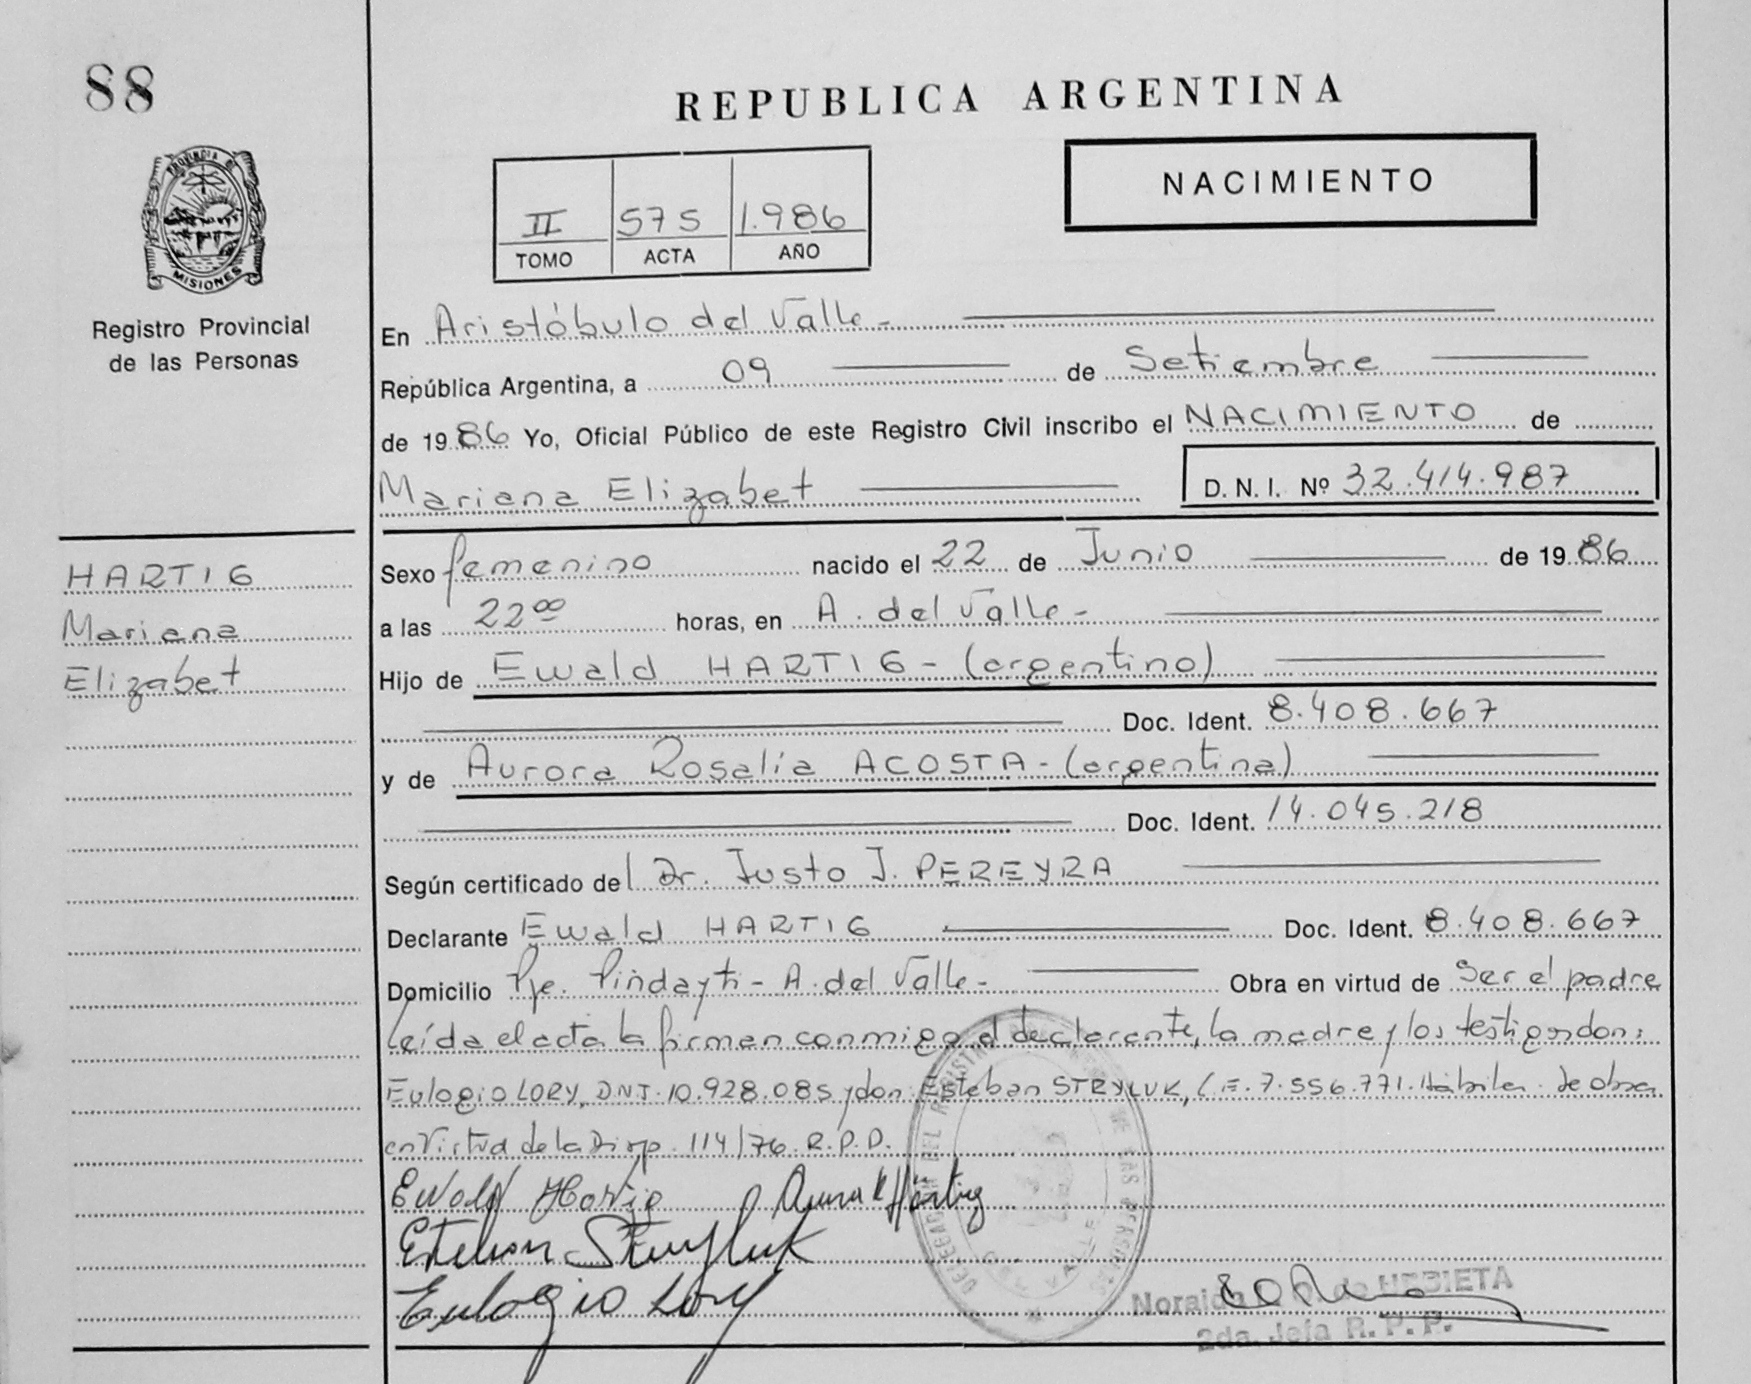 88
REPUBLICA ARGENTINA
PROVINCIA DE
MISIONES
Registro Provincial
de las Personas
II 575 1.986
TOMO ACTA AÑO
NACIMIENTO
En Aristóbulo del Valle-
República Argentina, a 09 de Setiembre
de 1986 Yo, Oficial Público de este Registro Civil inscribo el NACIMIENTO de
Mariana Elizabet D.N.I. Nº 32.414.987
HARTIG
Mariana
Elizabet
Sexo femenino nacido el 22 de Junio de 1986
a las 22 00 horas, en A. del Valle-
Hijo de Ewald HARTIG- (argentino)
Doc. Ident. 8.408.667
y de Aurora Rosalía ACOSTA- (argentina)
Doc. Ident. 14.045.218
Según certificado del Dr. Justo J. PEREYRA
Declarante Ewald HARTIG Doc. Ident. 8.408.667
Domicilio Pje. Pindayti- A. del Valle- Obra en virtud de Ser el padre
Leída el acta la firman conmigo el declarante, la madre y los testigos don:
Eulogio LORY, DNI. 10.928.085 y don Esteban STRYLUK, C.E. 7.556.771. Hábiles. Se obra
en Virtud de la Disp. 114/76. R.P.D.
Esteban Stryluk
Eulogio Lory
Noraida
2da. Jefa R.P.P.